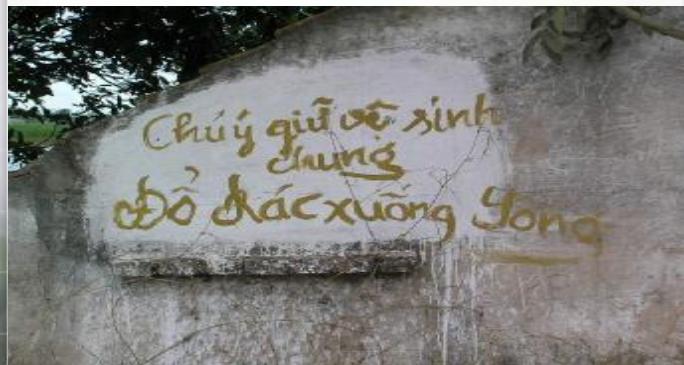 Chú ý giữ vê sinh
chung
Đổ chác xuống Song